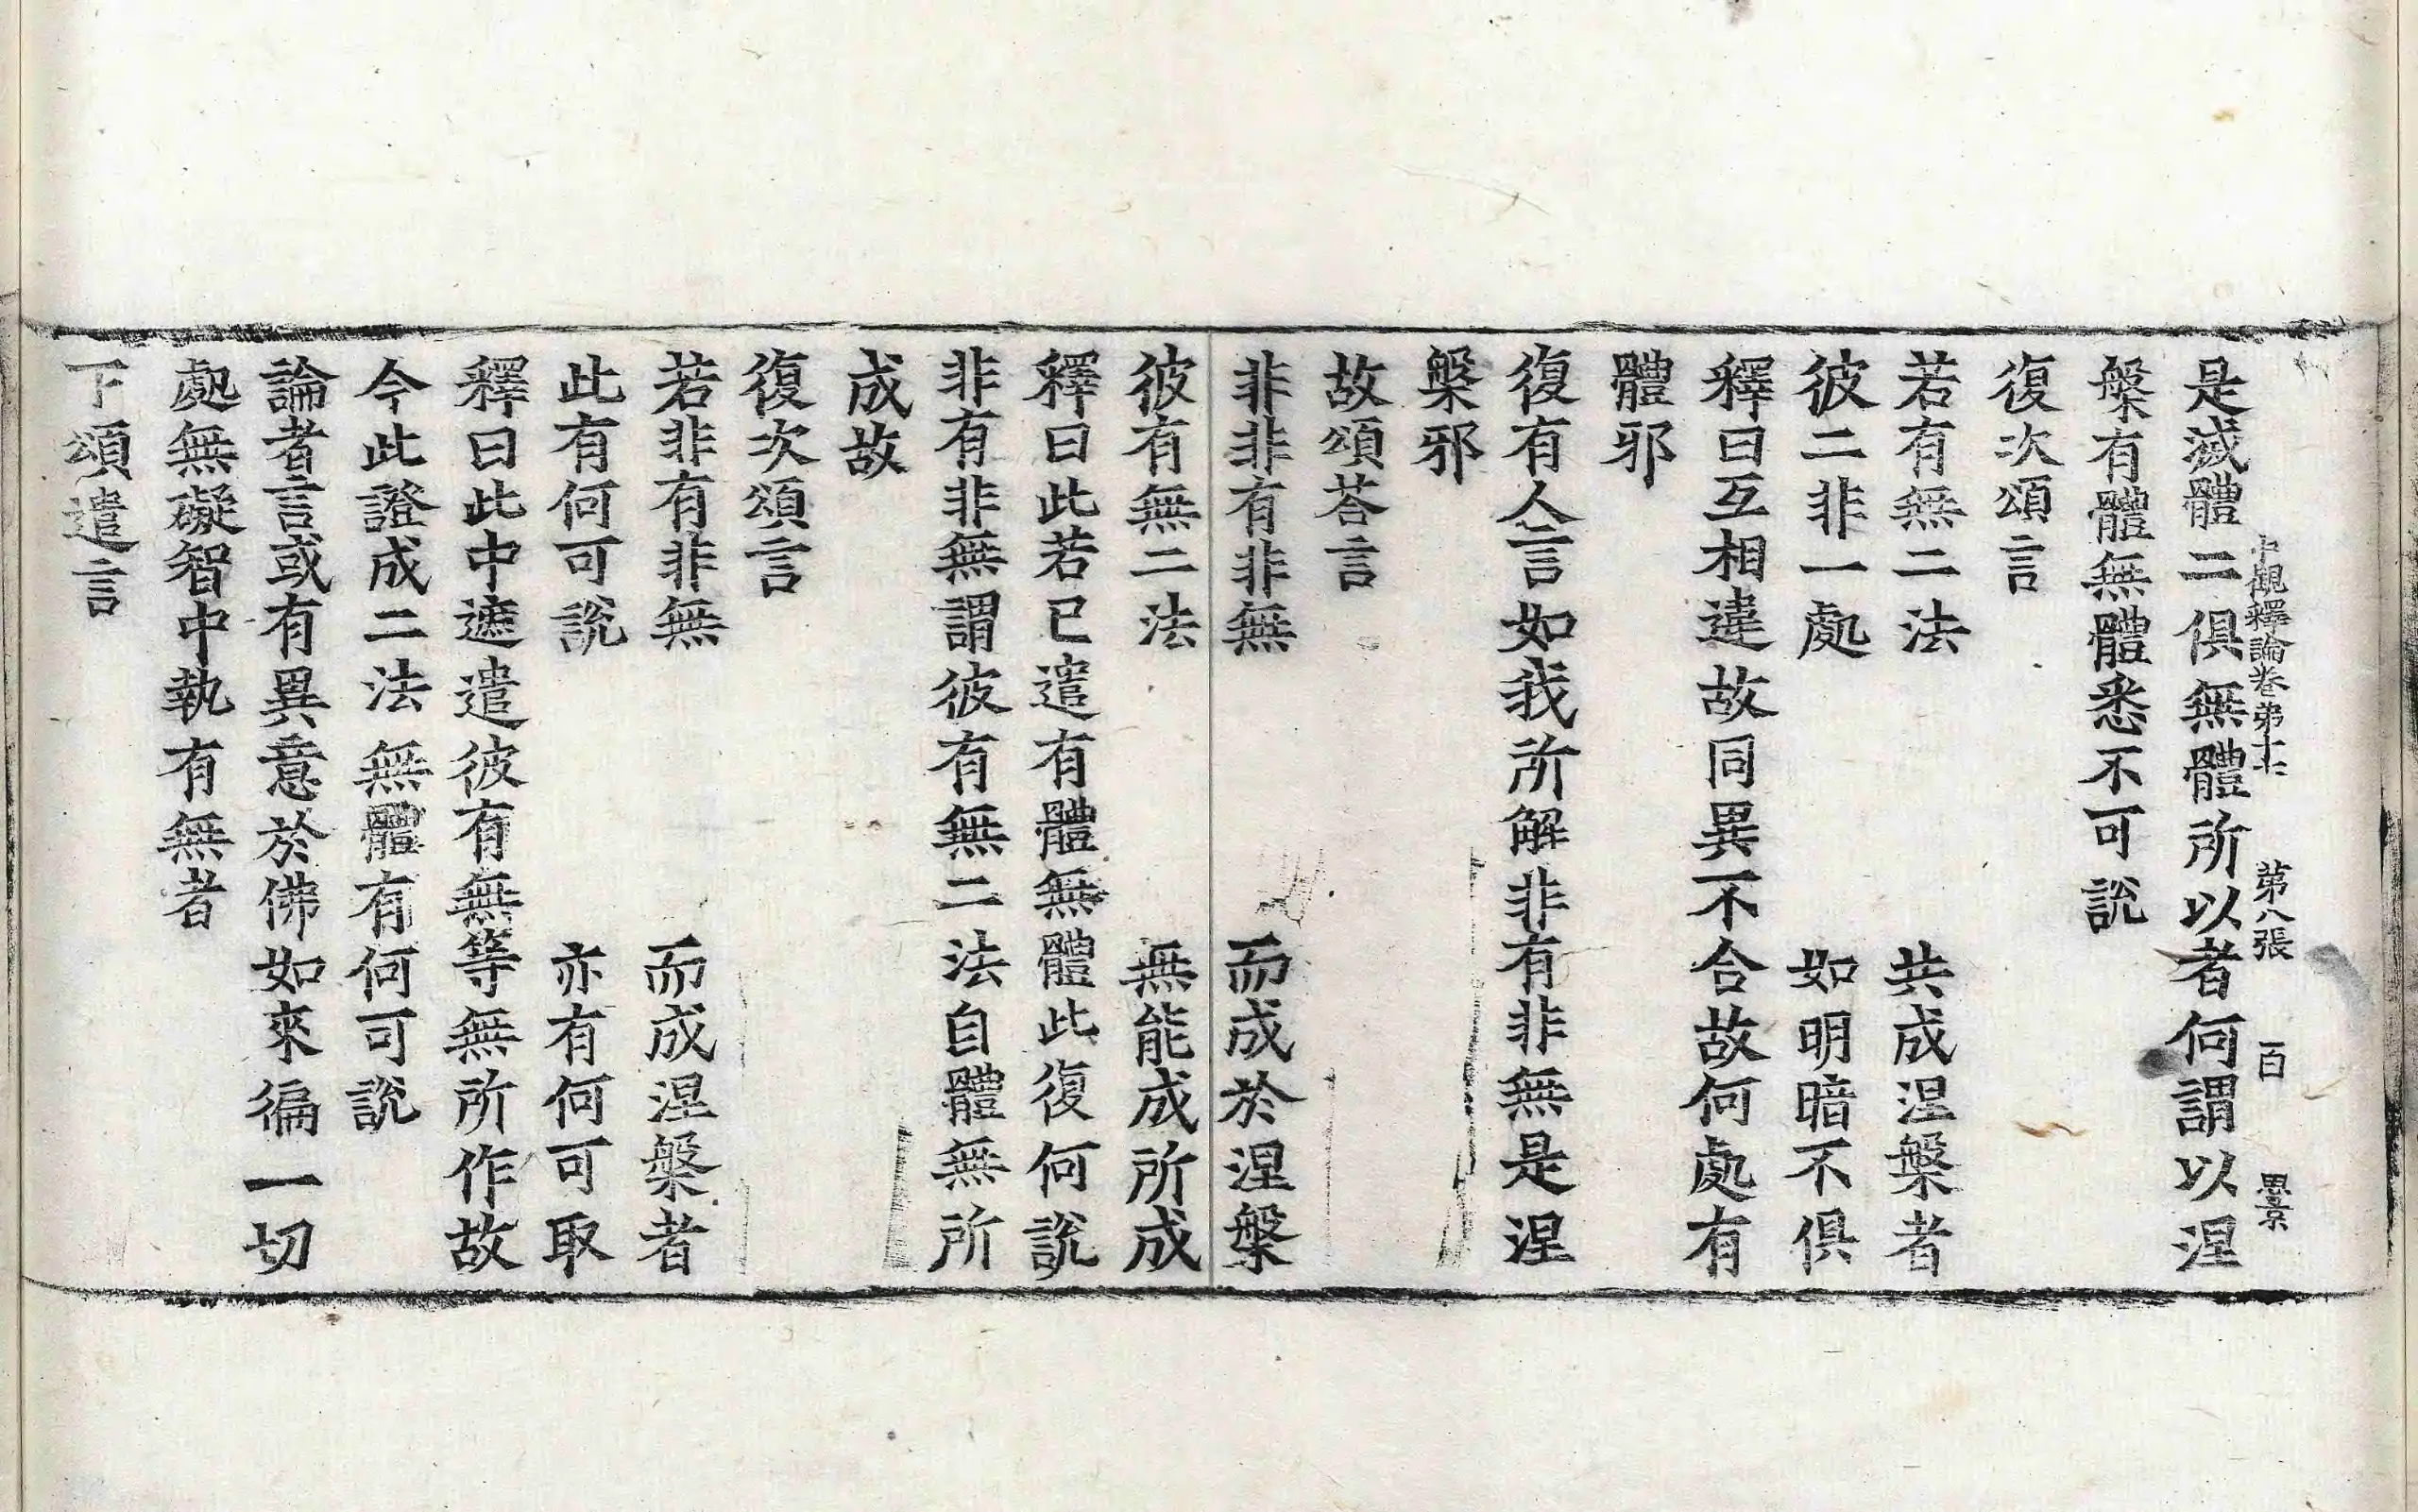 是滅體二俱無體所以者何謂以涅
槃有體無體悉不可說
復次頌言
若有無二法　共成涅槃者
彼二非一處　如明暗不俱
釋曰互相違故同異不合故何處有
體邪
復有人言如我所解非有非無是涅
槃邪
故頌荅言
非非有非無　而成於涅槃
彼有無二法　無能成所成
釋曰此若已遣有體無體此復何說
非有非無謂彼有無二法自體無所
成故
復次頌言
若非有非無　而成涅槃者
此有何可說　亦有何可取
釋曰此中遮遣彼有無等無所作故
今此證成二法無體有何可說
論者言或有異意於佛如來徧一切
處無礙智中執有無者
下頌遣言
中觀釋論卷弟十七　苐八張　百　罒景